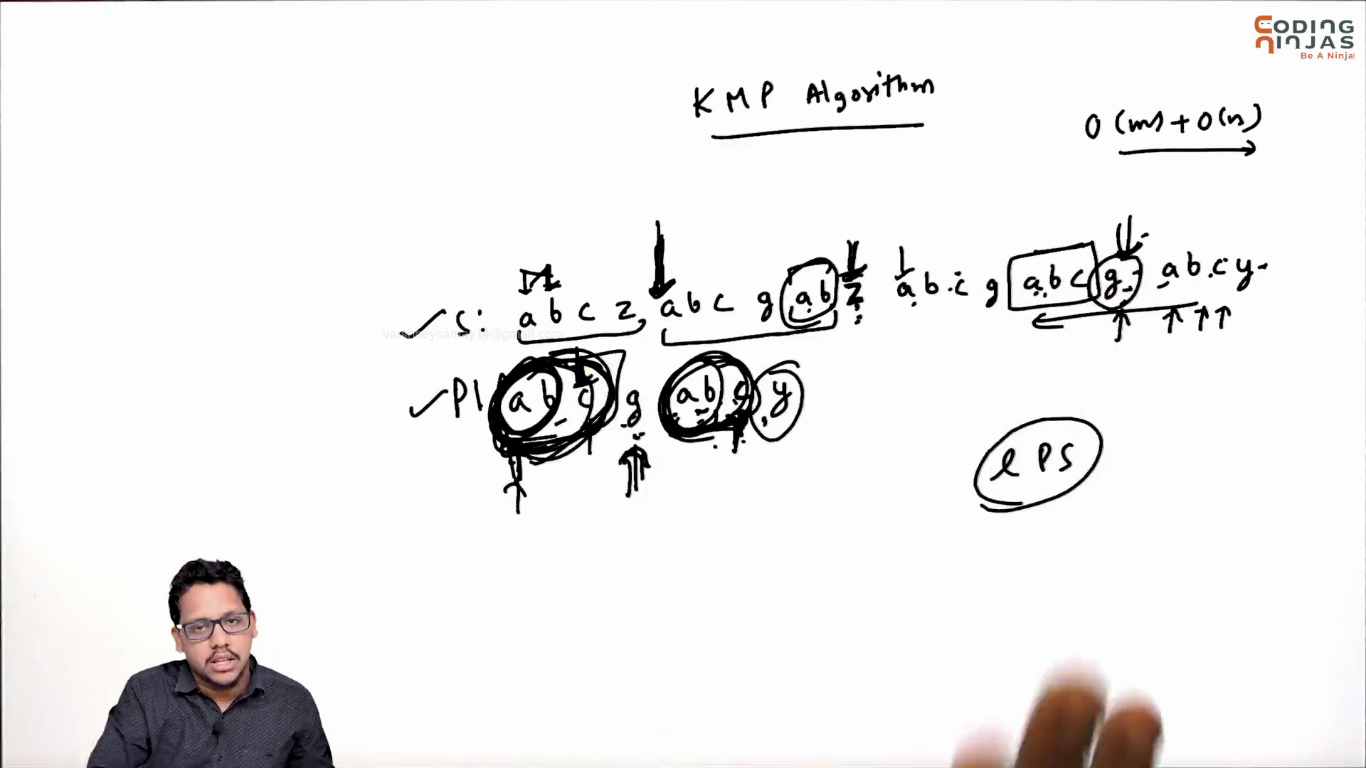 CODING
NINJAS
Be A Ninja
KMP Algorithm
O(m) + O(n)
S: a b c z a b c g a b z a b c g a b c g a b c y
P: a b c g a b c y
LPS